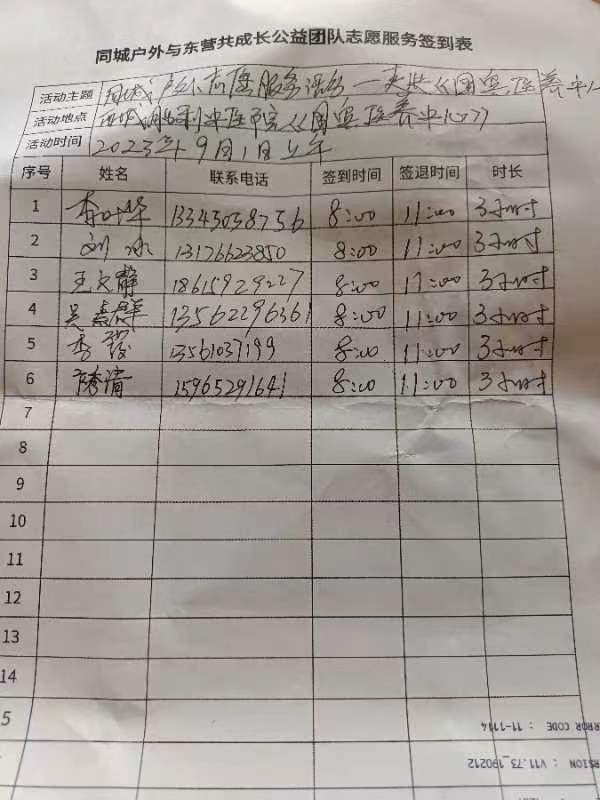 同城户外与东营共成长公益团队志愿服务签到表
活动主题 同城户外志愿服务课务一走进《国奥医养中心
活动地点 西城胜利医院《国奥医养中心》
活动时间 2023年9月1日上午
序号 姓名 联系电话 签到时间 签退时间 时长
1 李叶华 13345038756 8:00 11:00 3小时
2 刘冰 13176623850 8:00 11:00 3小时
3 王文静 18615929227 8:00 11:00 3小时
4 吴嘉群 13562296361 8:00 11:00 3小时
5 李 13561037199 8:00 11:00 3小时
6 清 15965291641 8:00 11:00 3小时
7
8
9
10
11
12
13
14
5
RROR CODE : 11-1114
RSION : V11.73_190212